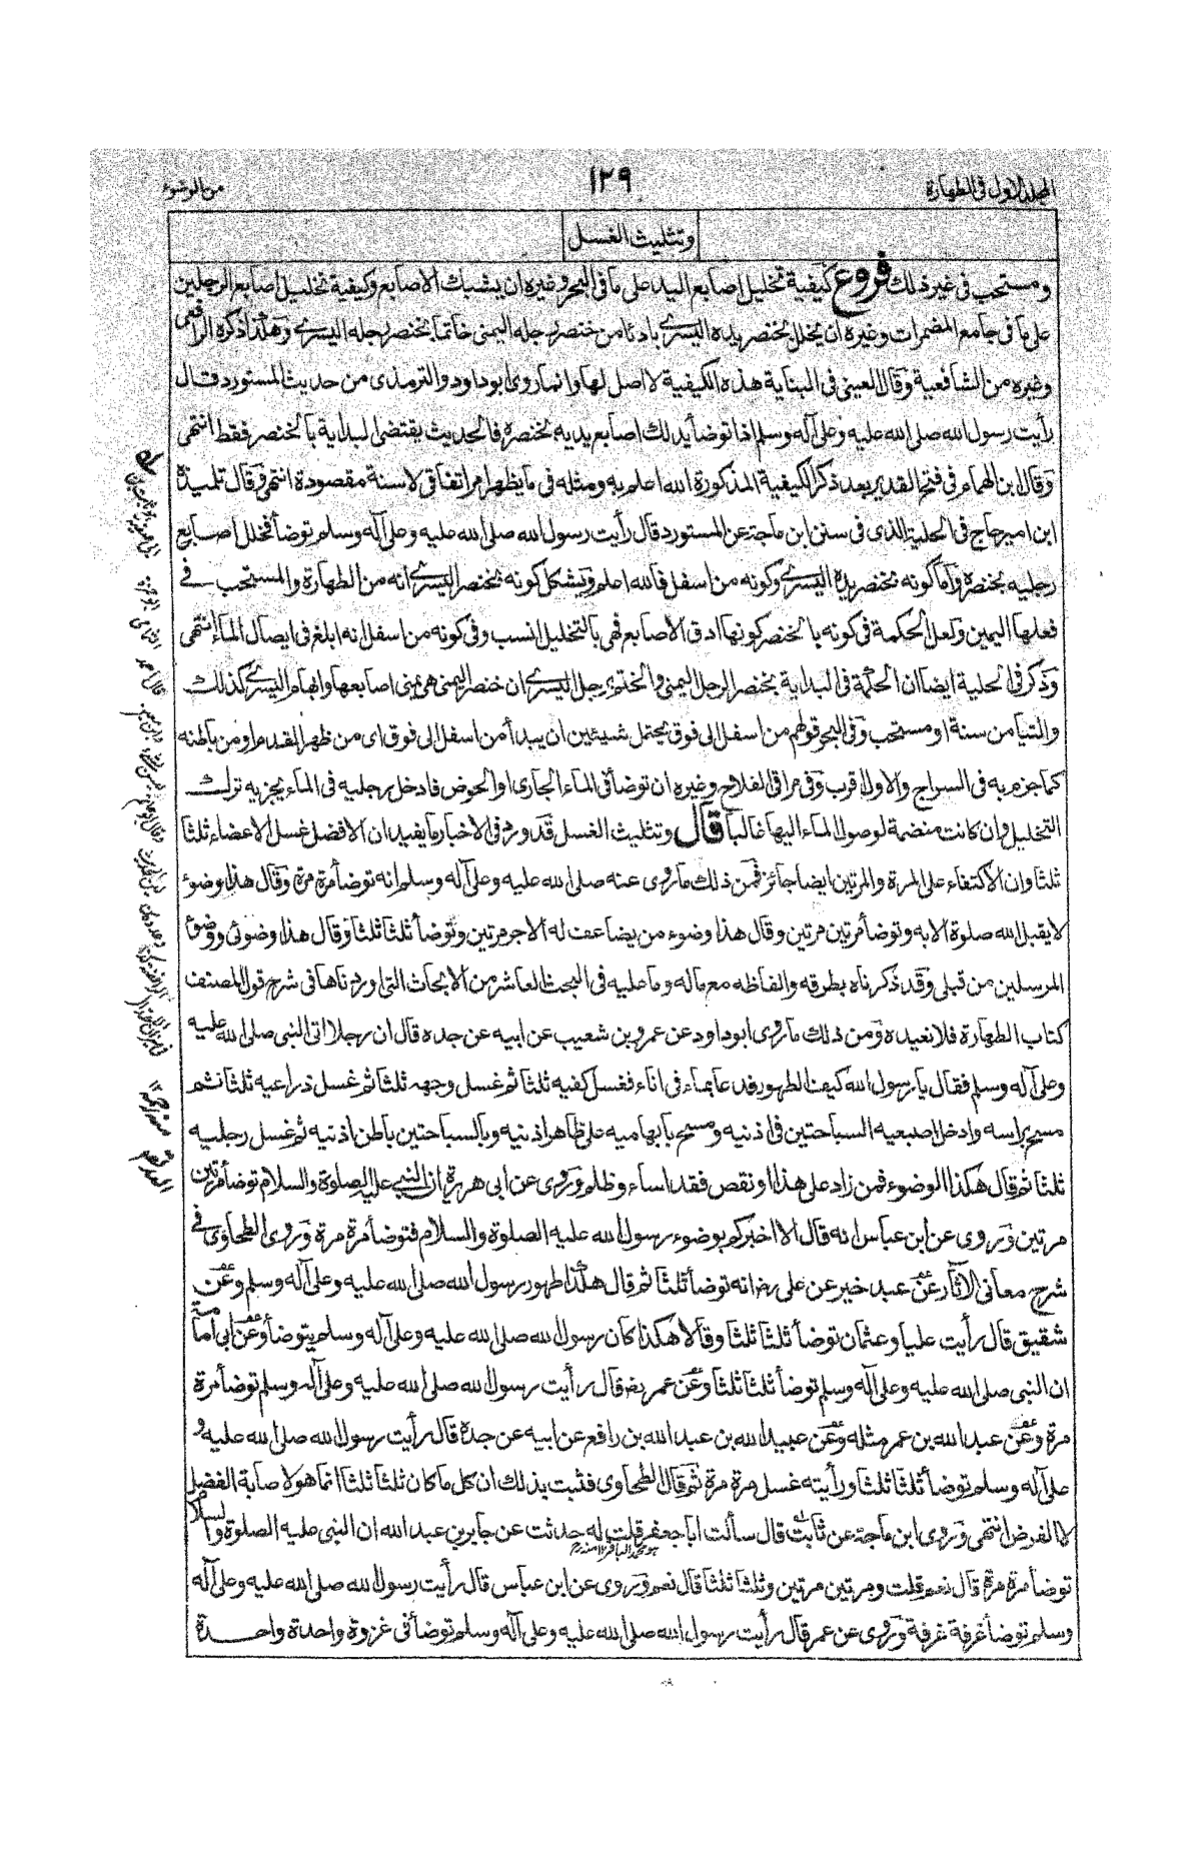 المجلد الاول فى الطهارة
١٢٩
من الوضوء
وتثليث الغسل
ومستحب فى غير ذلك فروع كيفية تخليل اصابع اليد على ما فى البحر وغيره ان يشبك الاصابع وكيفية تخليل اصابع الرجلين
على ما فى جامع المضمرات وغيره ان يخلل بخنصر يده اليسرى بادئا من خنصر رجله اليمنى خاتما بخنصر رجله اليسرى وهكذا ذكره الرافعى
وغيره من الشافعية وقال العينى فى البناية هذه الكيفية لا اصل لها وانما روى ابو داود والترمذى من حديث المستورد قال
رأيت رسول الله صلى الله عليه وعلى آله وسلم اذا توضأ يدلك اصابع يديه بخنصره فالحديث يقتضى البداية بالخنصر فقط انتهى
وقال ابن الهمام فى فتح القدير بعد ذكر الكيفية المذكورة الله اعلم به ومثله فى ما يظهر امر اتفاقى لا سنة مقصودة انتهى وقال تلميذه
ابن امير حاج فى الحلية الذى فى سنن ابن ماجة عن المستورد قال رأيت رسول الله صلى الله عليه وعلى آله وسلم توضأ فخلل اصابع
رجليه بخنصره واما كونه بخنصر يده اليسرى وكونه من اسفل فالله اعلم ويشكل كونه بخنصر اليسرى انه من الطهارة والمستحب فى
فعلها اليمين ولعل الحكمة فى كونه بالخنصر كونها ادق الاصابع فهى بالتخليل انسب وفى كونه من اسفل انه ابلغ فى ايصال الماء انتهى
وذكر فى الحلية ايضا ان الحكمة فى البداية بخنصر الرجل اليمنى والختم برجل اليسرى ان خنصر اليمنى هى يمنى اصابعها وابهام اليسرى كذلك
والتيامن سنة او مستحب وفى البحر قولهم من اسفل الى فوق يحتمل شيئين ان يبدأ من اسفل الى فوق اى من ظهر القدم او من باطنه
كما جزم به فى السراج والاول اقرب وفى مراقى الفلاح وغيره ان توضأ فى الماء الجارى او الحوض فادخل رجليه فى الماء يجزيه ترك
التخليل وان كانت منضمة لوصول الماء اليها غالبا قال وتثليث الغسل قد ورد فى الاخبار ما يفيد ان الافضل غسل الاعضاء ثلثا
ثلثا وان الاكتفاء على المرة والمرتين ايضا جائز فمن ذلك ما روى عنه صلى الله عليه وعلى آله وسلم انه توضأ مرة مرة وقال هذا وضوء
لا يقبل الله صلوة الا به وتوضأ مرتين مرتين وقال هذا وضوء من يضاعف له الاجر مرتين وتوضأ ثلثا ثلثا وقال هذا وضوئى ووضوء
المرسلين من قبلى وقد ذكرناه بطرقه والفاظه مع ماله وما عليه فى البحث العاشر من الابحاث التى اوردناها فى شرح قول المصنف
كتاب الطهارة فلا نعيده ومن ذلك ما روى ابو داود عن عمرو بن شعيب عن ابيه عن جده قال ان رجلا اتى النبى صلى الله عليه
وعلى آله وسلم فقال يا رسول الله كيف الطهور فدعا بماء فى اناء فغسل كفيه ثلثا ثم غسل وجهه ثلثا ثم غسل ذراعيه ثلثا ثم
مسح برأسه وادخل اصبعيه السباحتين فى اذنيه ومسح بابهاميه على ظاهر اذنيه وبالسباحتين باطن اذنيه ثم غسل رجليه
ثلثا ثم قال هكذا الوضوء فمن زاد على هذا او نقص فقد اساء وظلم وروى عن ابى هريرة ان النبى عليه الصلوة والسلام توضأ مرتين
مرتين وروى عن ابن عباس انه قال الا اخبركم بوضوء رسول الله عليه الصلوة والسلام فتوضأ مرة مرة وروى الطحاوى فى
شرح معانى الآثار عن عبد خير عن على رضـ انه توضأ ثلثا ثم قال هكذا طهور رسول الله صلى الله عليه وعلى آله وسلم وعن
شقيق قال رأيت عليا وعثمان توضأ ثلثا ثلثا وقالا هكذا كان رسول الله صلى الله عليه وعلى آله وسلم يتوضأ وعن ابى امامة
ان النبى صلى الله عليه وعلى آله وسلم توضأ ثلثا ثلثا وعن عمر رضـ قال رأيت رسول الله صلى الله عليه وعلى آله وسلم توضأ مرة
مرة وعن عبد الله بن عمر مثله وعن عبيد الله بن عبد الله بن رافع عن ابيه عن جده قال رأيت رسول الله صلى الله عليه و
على آله وسلم توضأ ثلثا ثلثا ورأيته غسل مرة مرة ثم قال الطحاوى فثبت بذلك ان كل ما كان ثلثا ثلثا انما هو لاصابة الفضل
لا الفرض انتهى وروى ابن ماجة عن ثابت قال سألت ابا جعفر قلت له حدثت عن جابر بن عبد الله ان النبى عليه الصلوة والسلام
هو محمد الباقر ١٢ منه رح
توضأ مرة مرة قال نعم قلت ومرتين مرتين وثلثا ثلثا قال نعم وروى عن ابن عباس قال رأيت رسول الله صلى الله عليه وعلى آله
وسلم توضأ غرفة غرفة وروى عن عمر قال رأيت رسول الله صلى الله عليه وعلى آله وسلم توضأ فى غزوة واحدة واحدة